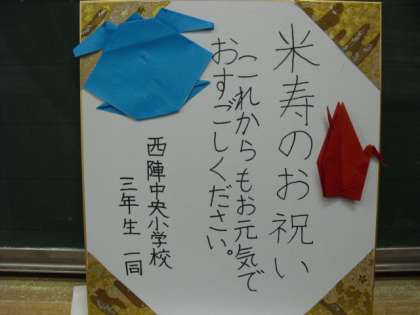 米寿のお祝い
これからもお元気で
おすごしください。
西陣中央小学校
三年生 一同